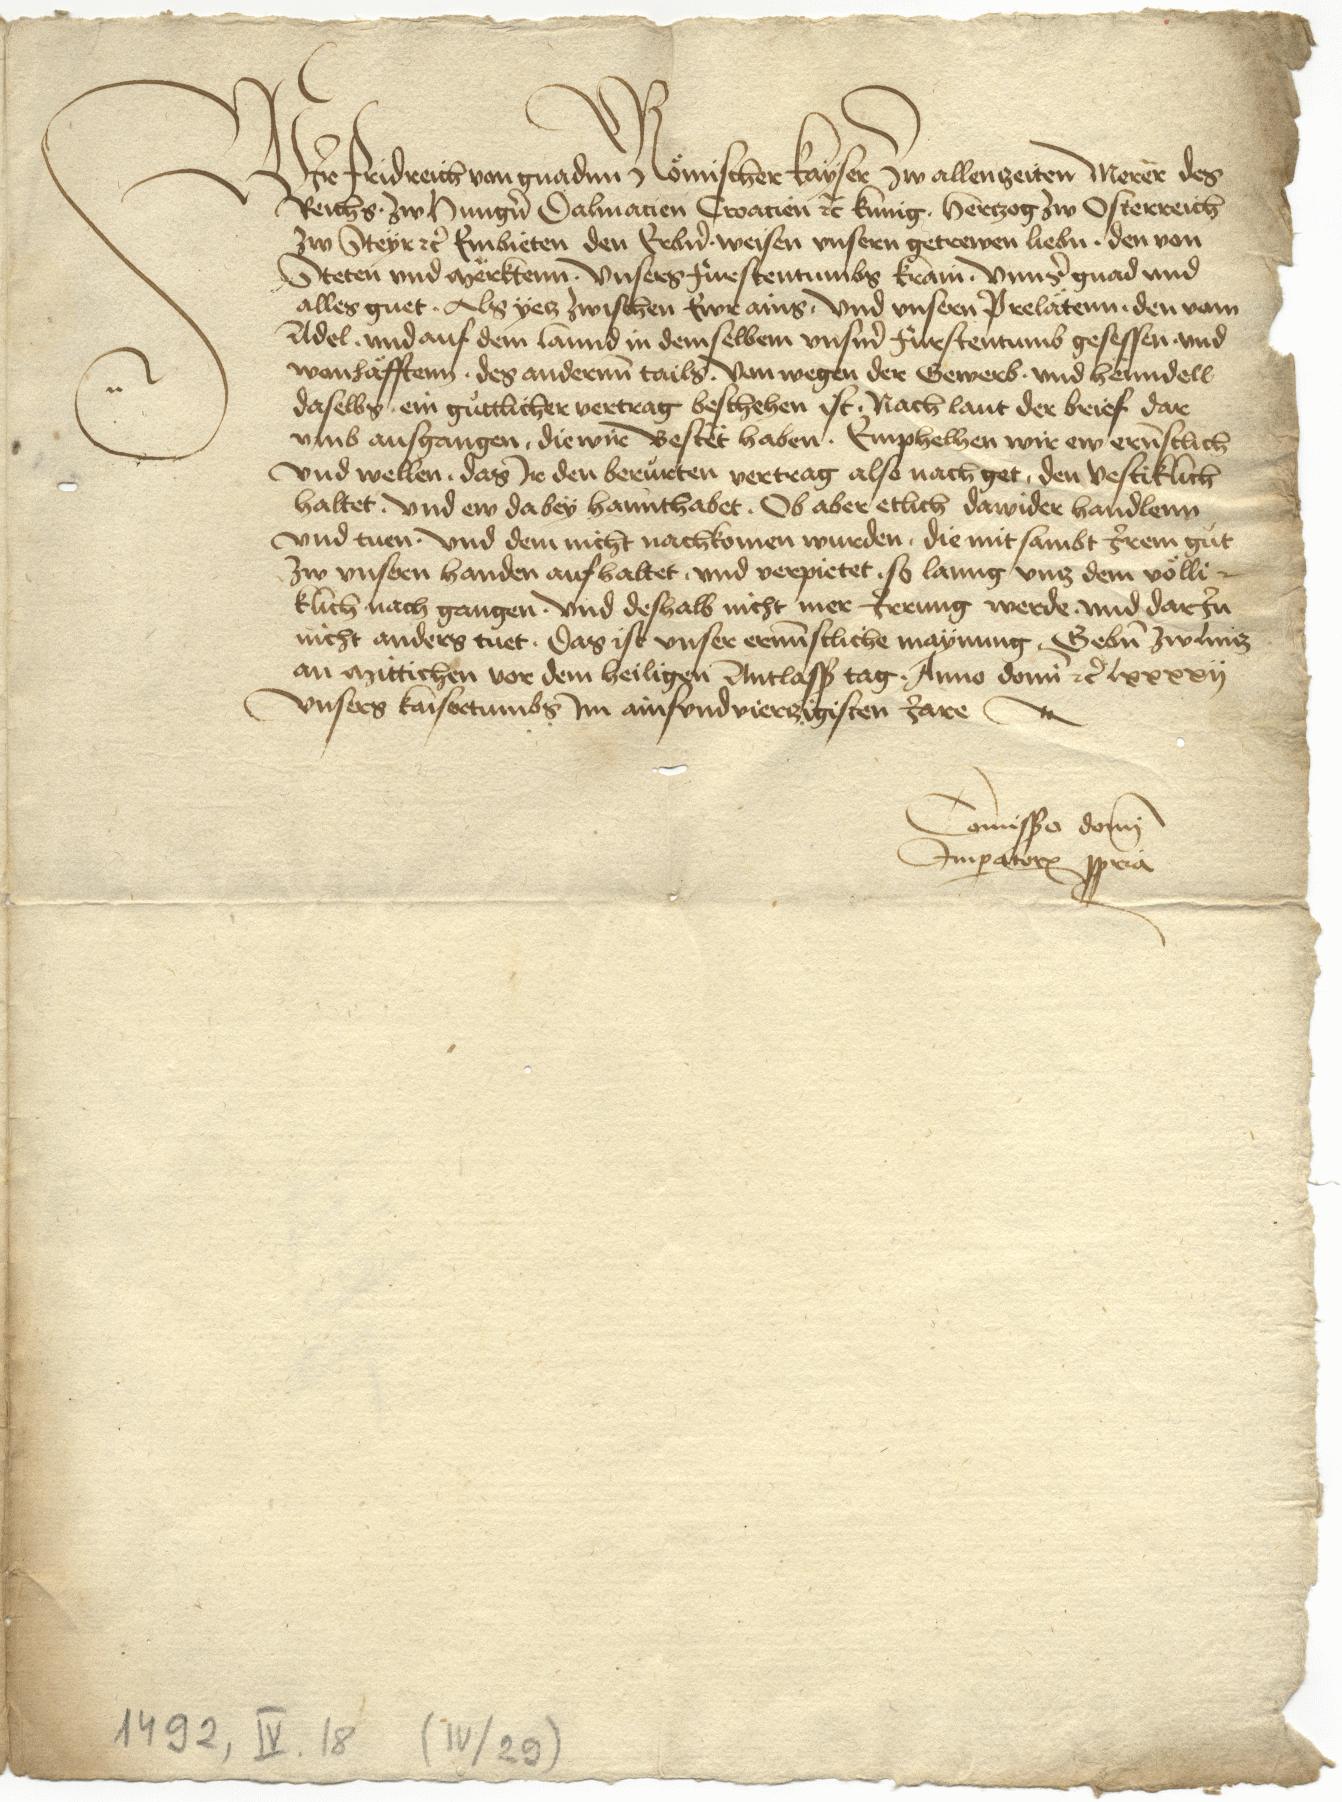 Wir Fridreich von gnadnn Römischer kayser zw allenzeiten Merer des
Reichs. zw Hungrn̄ Dalmacien Croacien ꝛc̄ kunig. Hertzog zw Osterreich
zw Steyr ꝛc̄ Embieten den Erbn̄. weisen vnsern getrewen liebn. den von
Steten vnd Merktenn. vnsers Furstentumbs krain. vnnsr̄ gnad vnd
alles guet. Als yetz zwischen Ewr ains. vnd vnsern Prelatenn. den vom
Adel. vnd auf dem lannd in demselbem vnsrn̄ Furstentumb gesessen. vnd
wonhäfftenn. des andernn tails. von wegen der Gewerb. vnd henndell
daselbs. ein guttlicher vertrag beschehen ist. Nach laut der brief dar
vmb ausgangen. die wir bestet haben. Emphelhen wir ew ernstlich
vnd wellen. das Ir den berurten vertrag also nach get. den vestiklich
haltet. vnd ew dabey hannthabet. Ob aber etlich dawider handlenn
vnd tuen. vnd dem nicht nachkomen wurden. die mit sambt Irem gut
zw vnsern handen aufhaltet. vnd verpietet. so lanng vntz dem völli
klich nach gangen. vnd deshalb nicht mer Irrung werde. vnd dar Inn
nicht anders tuet. Das ist vnser ernnstliche maynung. Gebn̄ zw linntz
an Mittichen vor dem heiligen Antlasß tag. Anno domī ꝛc̄ lxxxxij
vnsers kaisertumbs Im ainsvndvierzigisten Jare
Comissio domī
Imperatorꝭ ppria
1492, IV. 18 (IV/29)